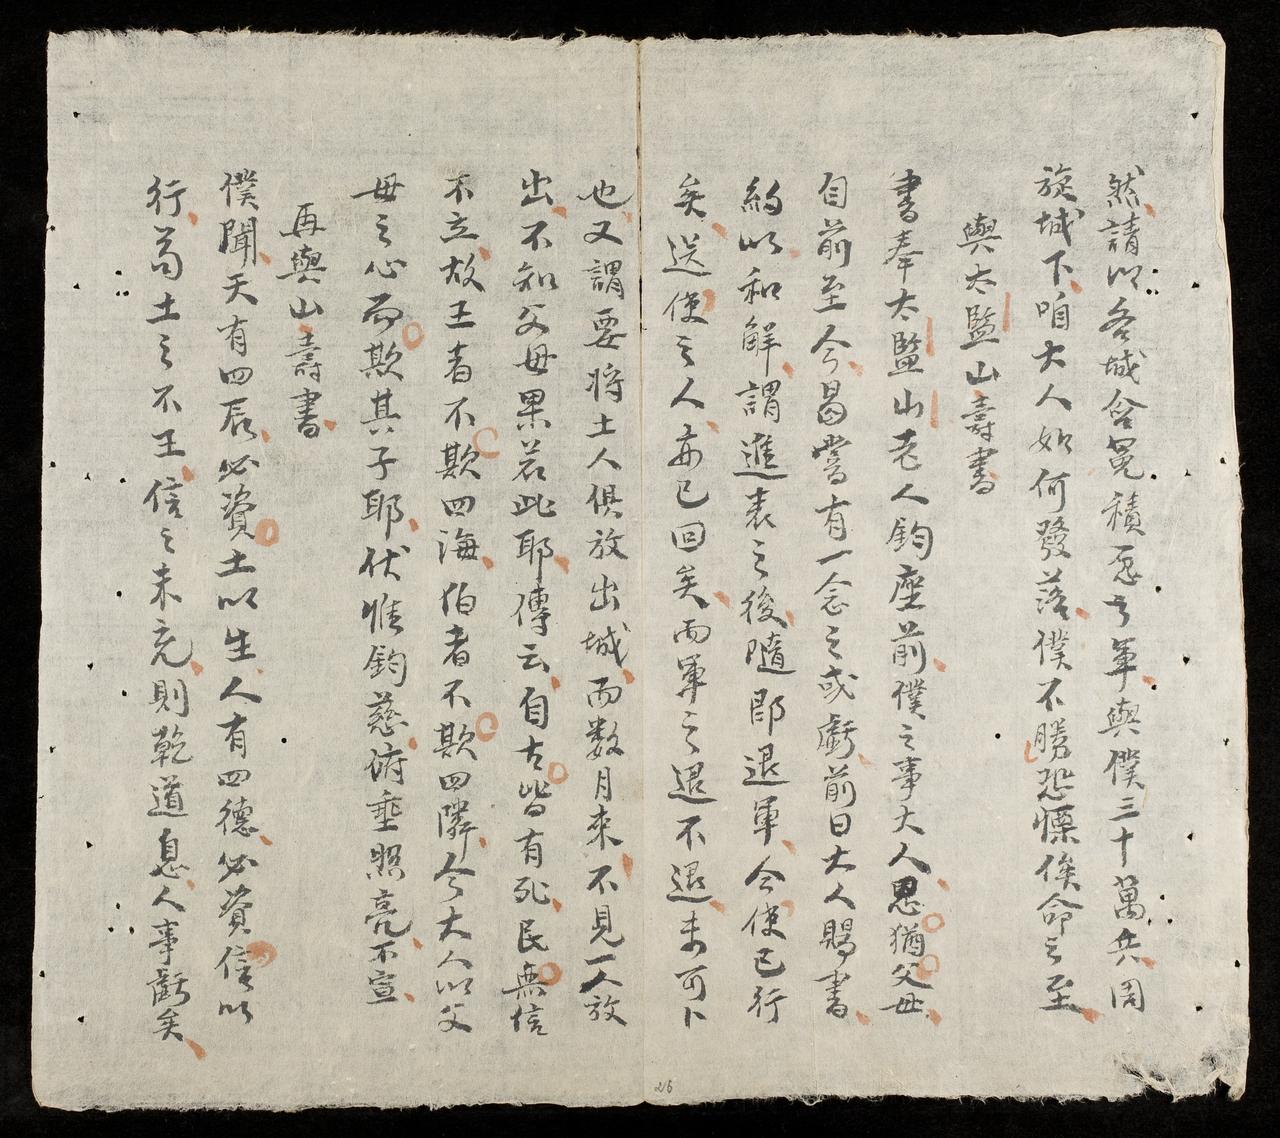 然請以各城含冤積怨之軍與僕三十萬兵周
旋城下咱大人如何發落僕不勝恐慄俟命之至
與太監山壽書
書奉太監山老人鈞座前僕之事大人恩猶父母
自前至今曷嘗有一念之或虧前日大人賜書
約以和解謂進表之後隨即退軍今使已行
矣送使之人亦已回矣而軍之退不退未可卜
也又謂要將土人俱放出城而数月来不見一人放
出不知父母果若此耶傳云自古皆有死民無信
不立故王者不欺四海伯者不欺四隣今大人以父
母之心而欺其子耶伏惟鈞慈俯垂照亮不宣
再與山壽書
僕聞天有四辰必資土以生人有四德必資信以
行苟土之不王信之未充則乾道息人事虧矣
26